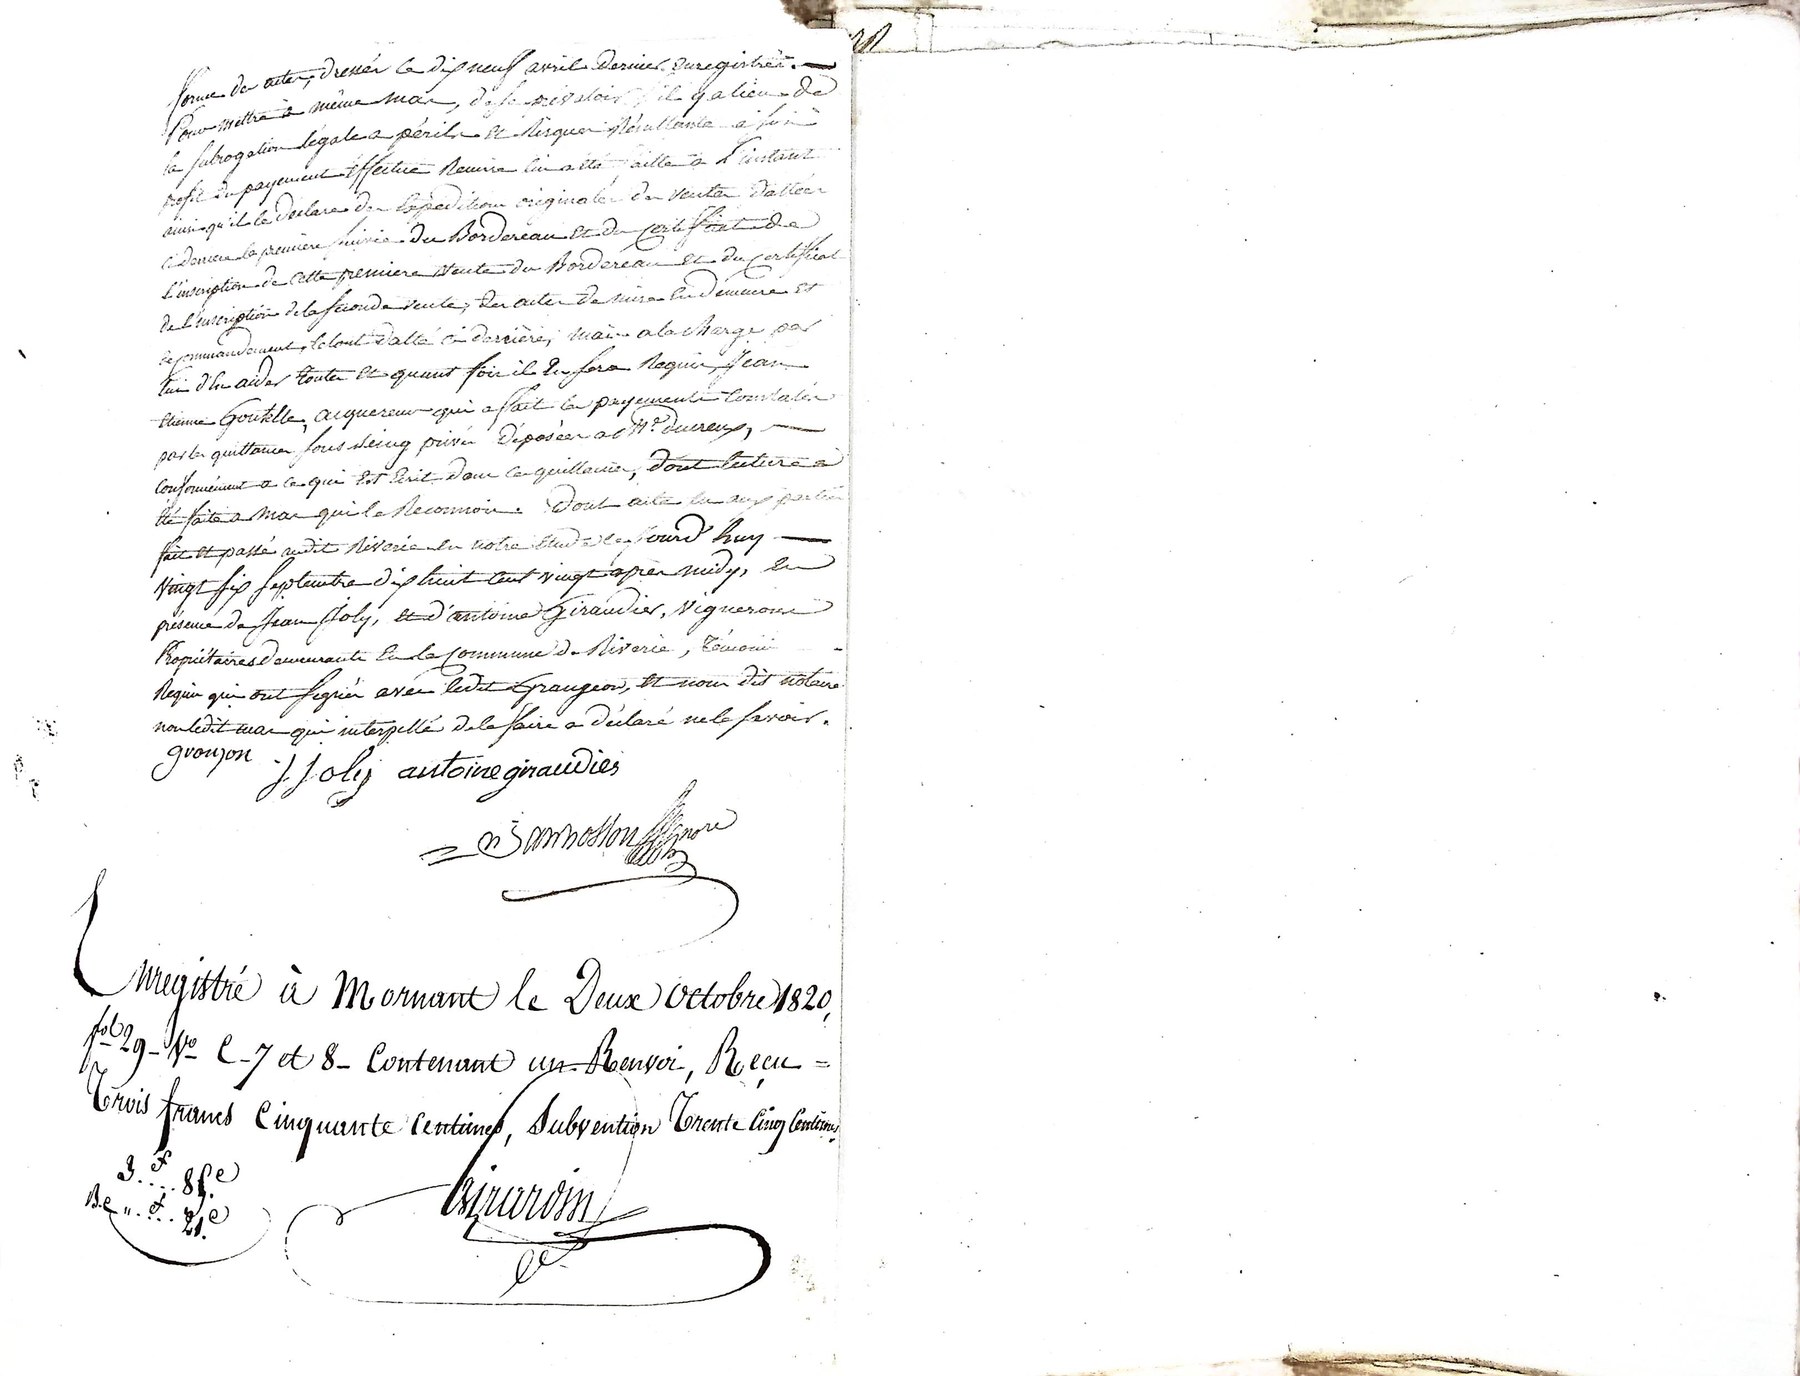 forme des actes, dressés le dix neuf avril dernier enregistrés.
Pour mettre à même mas, de se prévaloir s'il y a lieu de
la subrogation légale a périls et Risques Résultante a son
profit du payement effectué Remise lui a été faitte a L'instant
ainsi qu'il le déclare des Expeditions originales des ventes dattées
ci derriere la premiere suivie du Bordereau et du certificat de
L'inscription de cette premiere vente du Bordereau et du certificat
de L'inscription de la seconde vente, des actes de mise en demeure et
de commandement, le tout datté ci derriere, mais a la charge par
lui d'en aider toutes et quant fois il en sera Requis, Jean
Etienne Goutelle, acquereur qui a fait les payements Constatés
par les quittances sous seing privé Déposées a Me ducreux,
Conformément a ce qui est écrit dans ces quittances, dont lecture a
été faite a mas qui le Reconnoit. Dont acte lu aux parties
fait et passé audit Riverie en notre Etude le jourd'huy
vingt six septembre dix huit cent vingt apres midy, en
présence de Jean Joly, et d'antoine Giraudier, vignerons
Propriétaires demeurants en la Commune de Riverie, témoins
Requis qui ont signés avec ledit Grangeon, et nous dit notaire
non ledit mas qui interpellé de le faire a déclaré ne le savoir.
gronjon
J Joly antoine giraudier
Enregistré à Mornant le Deux Octobre 1820,
fol 29 Vo C 7 et 8 Contenant un Renvoi, Reçu =
Trois francs Cinquante Centimes, Subvention Trente Cinq Centimes
3 f .... 85 c
B.e " f ... 21 c
Girardin